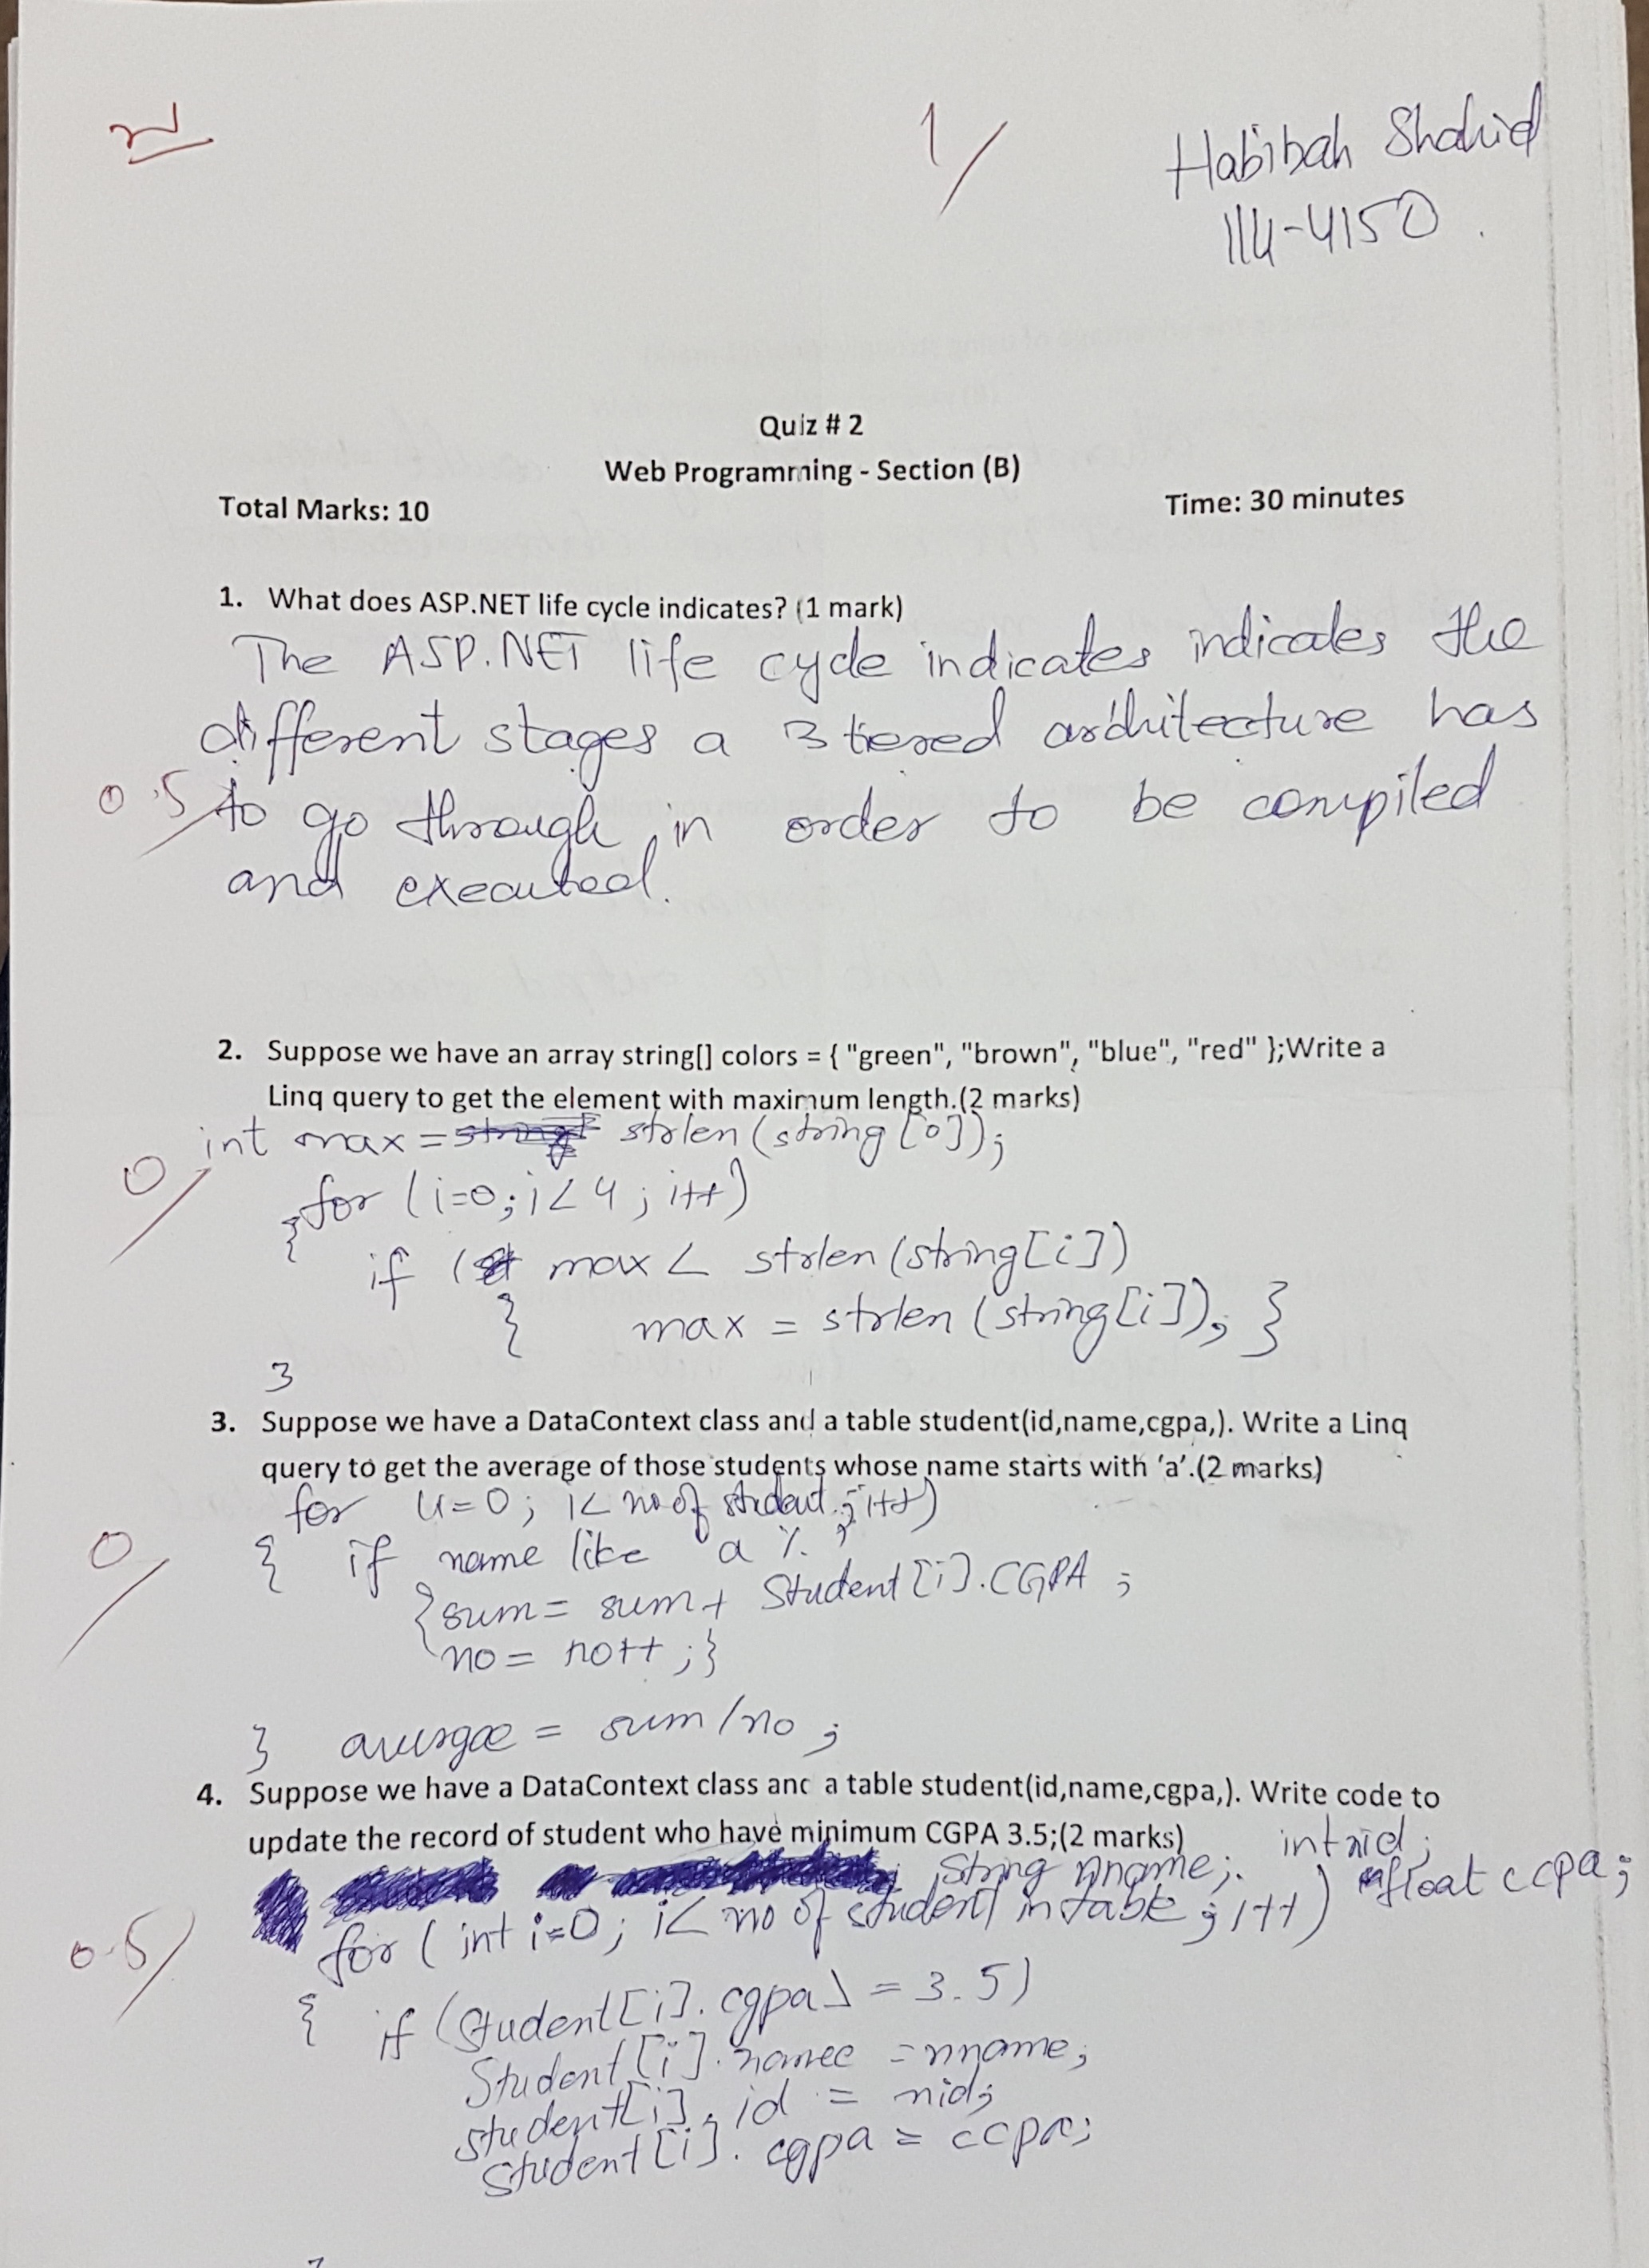 1/
Habibah Shahid
114-4150
Quiz # 2
Web Programming - Section (B)
Total Marks: 10
Time: 30 minutes
1. What does ASP.NET life cycle indicates? (1 mark)
The ASP.NET life cycle indicates indicates the
different stages a 3 tiered architecture has
0.5/ to go through, in order to be compiled
and executed.
2. Suppose we have an array string[] colors = { "green", "brown", "blue", "red" };Write a
Linq query to get the element with maximum length.(2 marks)
int max = strlen(string[0]);
0/
for (i=0; i<4; i++)
{
if ( max < strlen(string[i])
{ max = strlen(string[i]); }
}
3. Suppose we have a DataContext class and a table student(id,name,cgpa,). Write a Linq
query to get the average of those students whose name starts with 'a'.(2 marks)
for (i=0; i< no of student; i++)
0/
{ if name like 'a%'
{sum = sum + Student[i].CGPA ;
no = no++ ;}
} averge = sum/no ;
4. Suppose we have a DataContext class and a table student(id,name,cgpa,). Write code to
update the record of student who have minimum CGPA 3.5;(2 marks) int nid;
String nname; float ccpa;
for ( int i=0; i< no of student in table ; i++)
0.5/
{ if (Student[i].cgpa >= 3.5)
Student[i].name = nname;
student[i].id = nid;
Student[i].cgpa = ccpa;